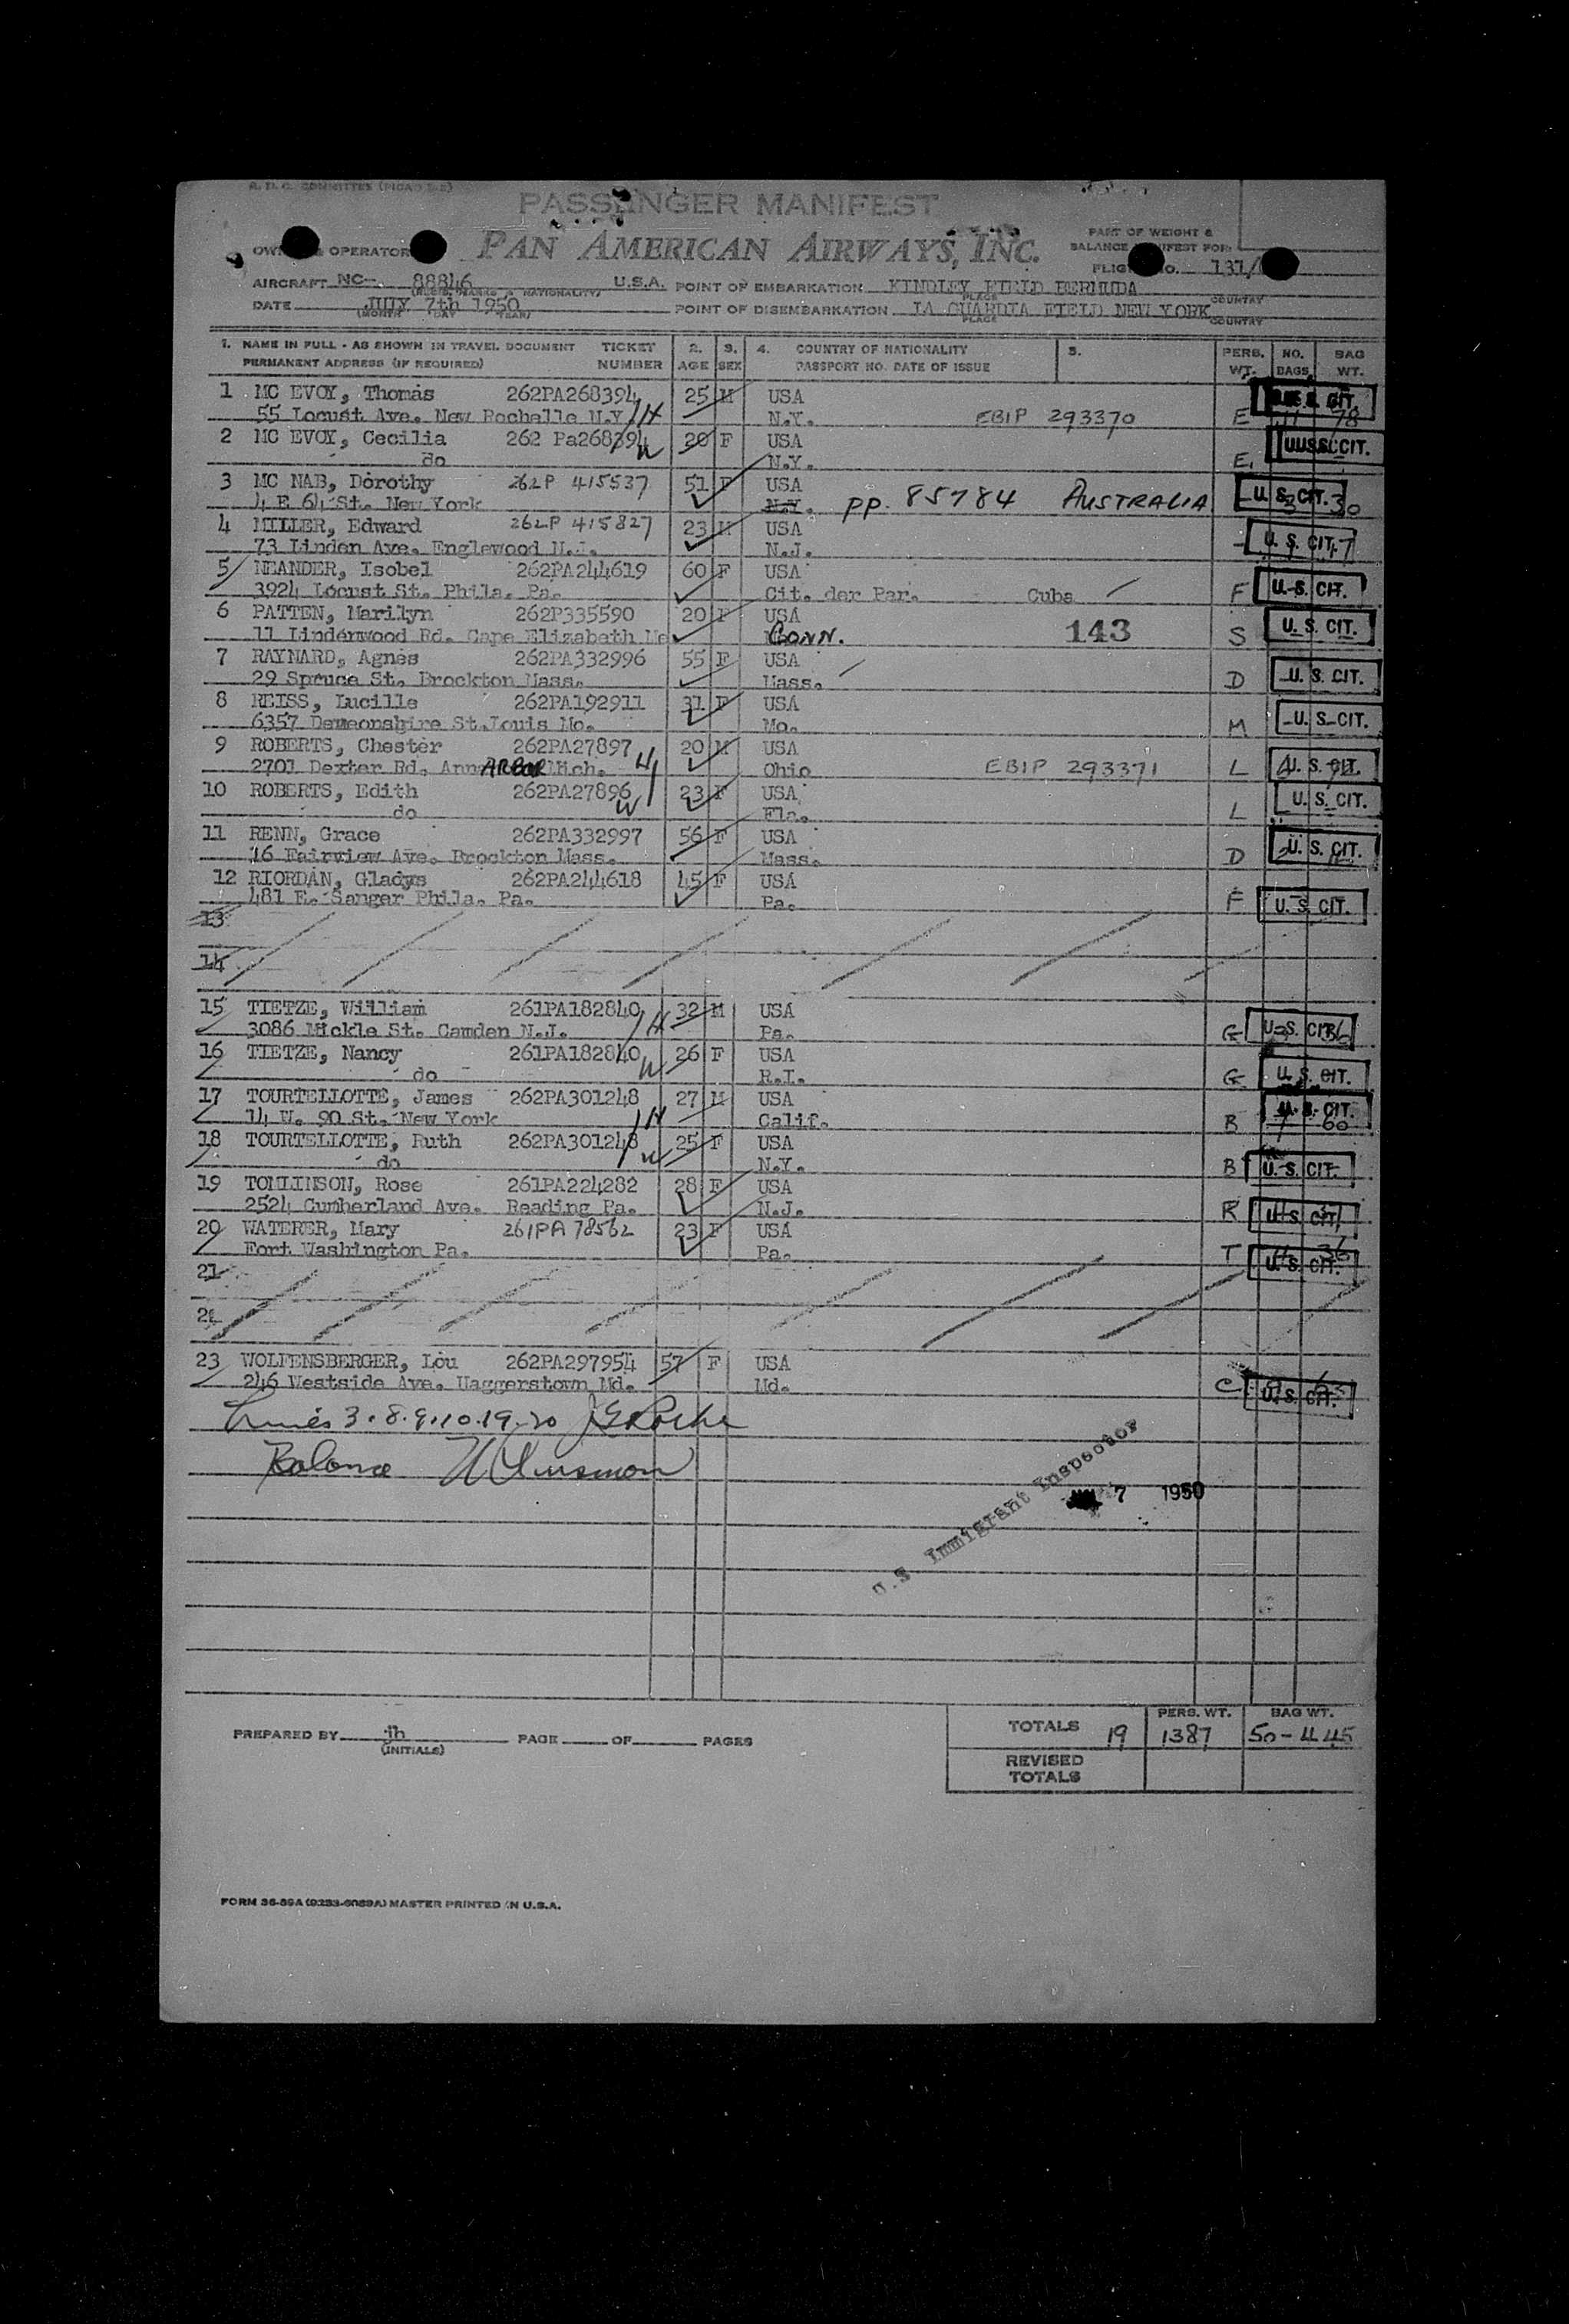 PASSENGER MANIFEST
OPERATOR PAN AMERICAN AIRWAYS, INC.
PART OF WEIGHT &
BALANCE FOR:
AIRCRAFT NC- 88846 U.S.A. POINT OF EMBARKATION KINDLEY FIELD BERMUDA
131/
DATE JULY 7th 1950 POINT OF DISEMBARKATION LA GUARDIA FIELD NEW YORK
(MONTH DAY YEAR) PLACE COUNTRY
1. NAME IN FULL - AS SHOWN IN TRAVEL DOCUMENT TICKET 2. 3. 4. COUNTRY OF NATIONALITY 5. PERS. NO. BAG
PERMANENT ADDRESS (IF REQUIRED) NUMBER AGE SEX PASSPORT NO. DATE OF ISSUE WT. BAGS WT.
1 MC EVOY, Thomas 262PA268394 25 M USA
55 Locust Ave. New Rochelle N.Y. H N.Y. EBIP 293370 E 78
2 MC EVOY, Cecilia 262 Pa268394 W 20 F USA CIT.
do N.Y. E
3 MC NAB, Dorothy 262P 415537 51 F USA
4 E 64 St. New York N.Y. PP. 85784 AUSTRALIA U. S. CIT. 3 30
4 MILLER, Edward 262P 415827 23 M USA
73 Linden Ave. Englewood N.J. N.J. U. S. CIT.
5 NEANDER, Isobel 262PA244619 60 F USA
3924 Locust St. Phila. Pa. Cit. der Par. Cuba F U. S. CIT.
6 PATTEN, Marilyn 262P335590 20 F USA
11 Lindenwood Rd. Cape Elizabeth Me CONN. 143 S U. S. CIT.
7 RAYNARD, Agnes 262PA332996 55 F USA
29 Spruce St. Brockton Mass. Mass. D U. S. CIT.
8 REISS, Lucille 262PA192911 31 F USA
6357 St.Louis Mo. Mo. M U. S. CIT.
9 ROBERTS, Chester 262PA27897 20 M USA
2701 Dexter Rd, Ann ARBOR Mich. H Ohio EBIP 293371 L U. S. CIT.
10 ROBERTS, Edith 262PA27896 W 23 F USA
do Fla. L U. S. CIT.
11 RENN, Grace 262PA332997 56 F USA
16 Fairview Ave. Brockton Mass. Mass. D U. S. CIT.
12 RIORDAN, Gladys 262PA244618 45 F USA
481 E. Sanger Phila. Pa. Pa. F U. S. CIT.
13
14
15 TIETZE, William 261PA182840 32 M USA
3086 Mickle St. Camden N.J. H Pa. G U. S. CIT.
16 TIETZE, Nancy 261PA182840 W 26 F USA
do R.I. G U. S. CIT.
17 TOURTELLOTTE, James 262PA301248 27 M USA
14 W. 90 St. New York H Calif. B U. S. CIT. 60
18 TOURTELLOTTE, Ruth 262PA301248 W 25 F USA
do N.Y. B U. S. CIT.
19 TOMLINSON, Rose 261PA224282 28 F USA
2524 Cumberland Ave. Reading Pa. N.J. R U. S. CIT.
20 WATERER, Mary 261PA 78562 23 F USA
Fort Washington Pa. Pa. T U. S. CIT. 36
21
23 WOLFENSBERGER, Lou 262PA297954 57 F USA
246 Westside Ave. Haggerstown Md. Md. C U. S. CIT.
3.8.9.10.19.20
Balance
U.S Immigrant Inspector
7 1950
PREPARED BY jb PAGE OF PAGES
(INITIALS)
PERS. WT. BAG WT.
TOTALS 19 1387 50-445
REVISED
TOTALS
MASTER PRINTED IN U.S.A.